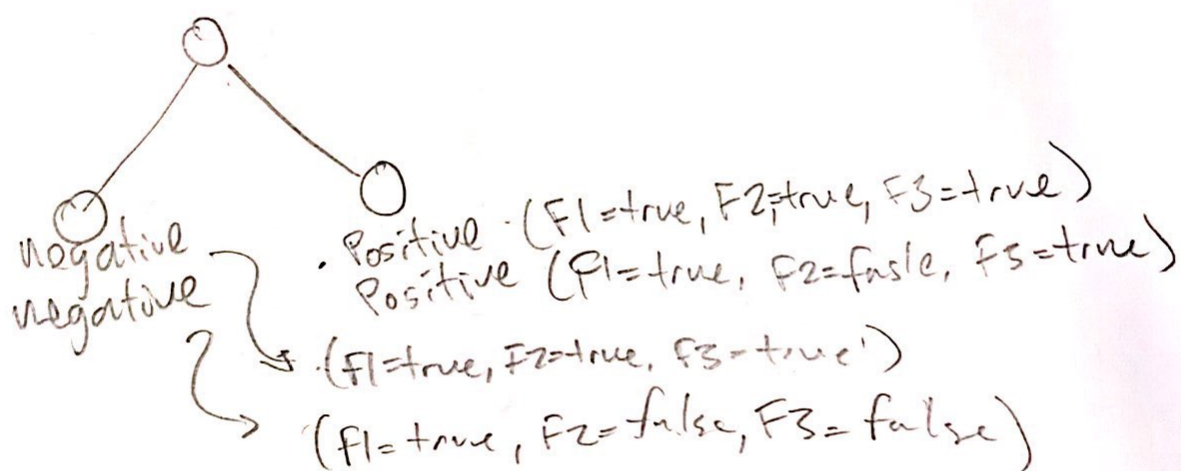 negative
negative
. Positive . (F1=true, F2=true, F3=true)
Positive (F1=true, F2=fasle, F3=true)
. (F1=true, F2=true, F3=true')
(F1=true, F2=false, F3=false)